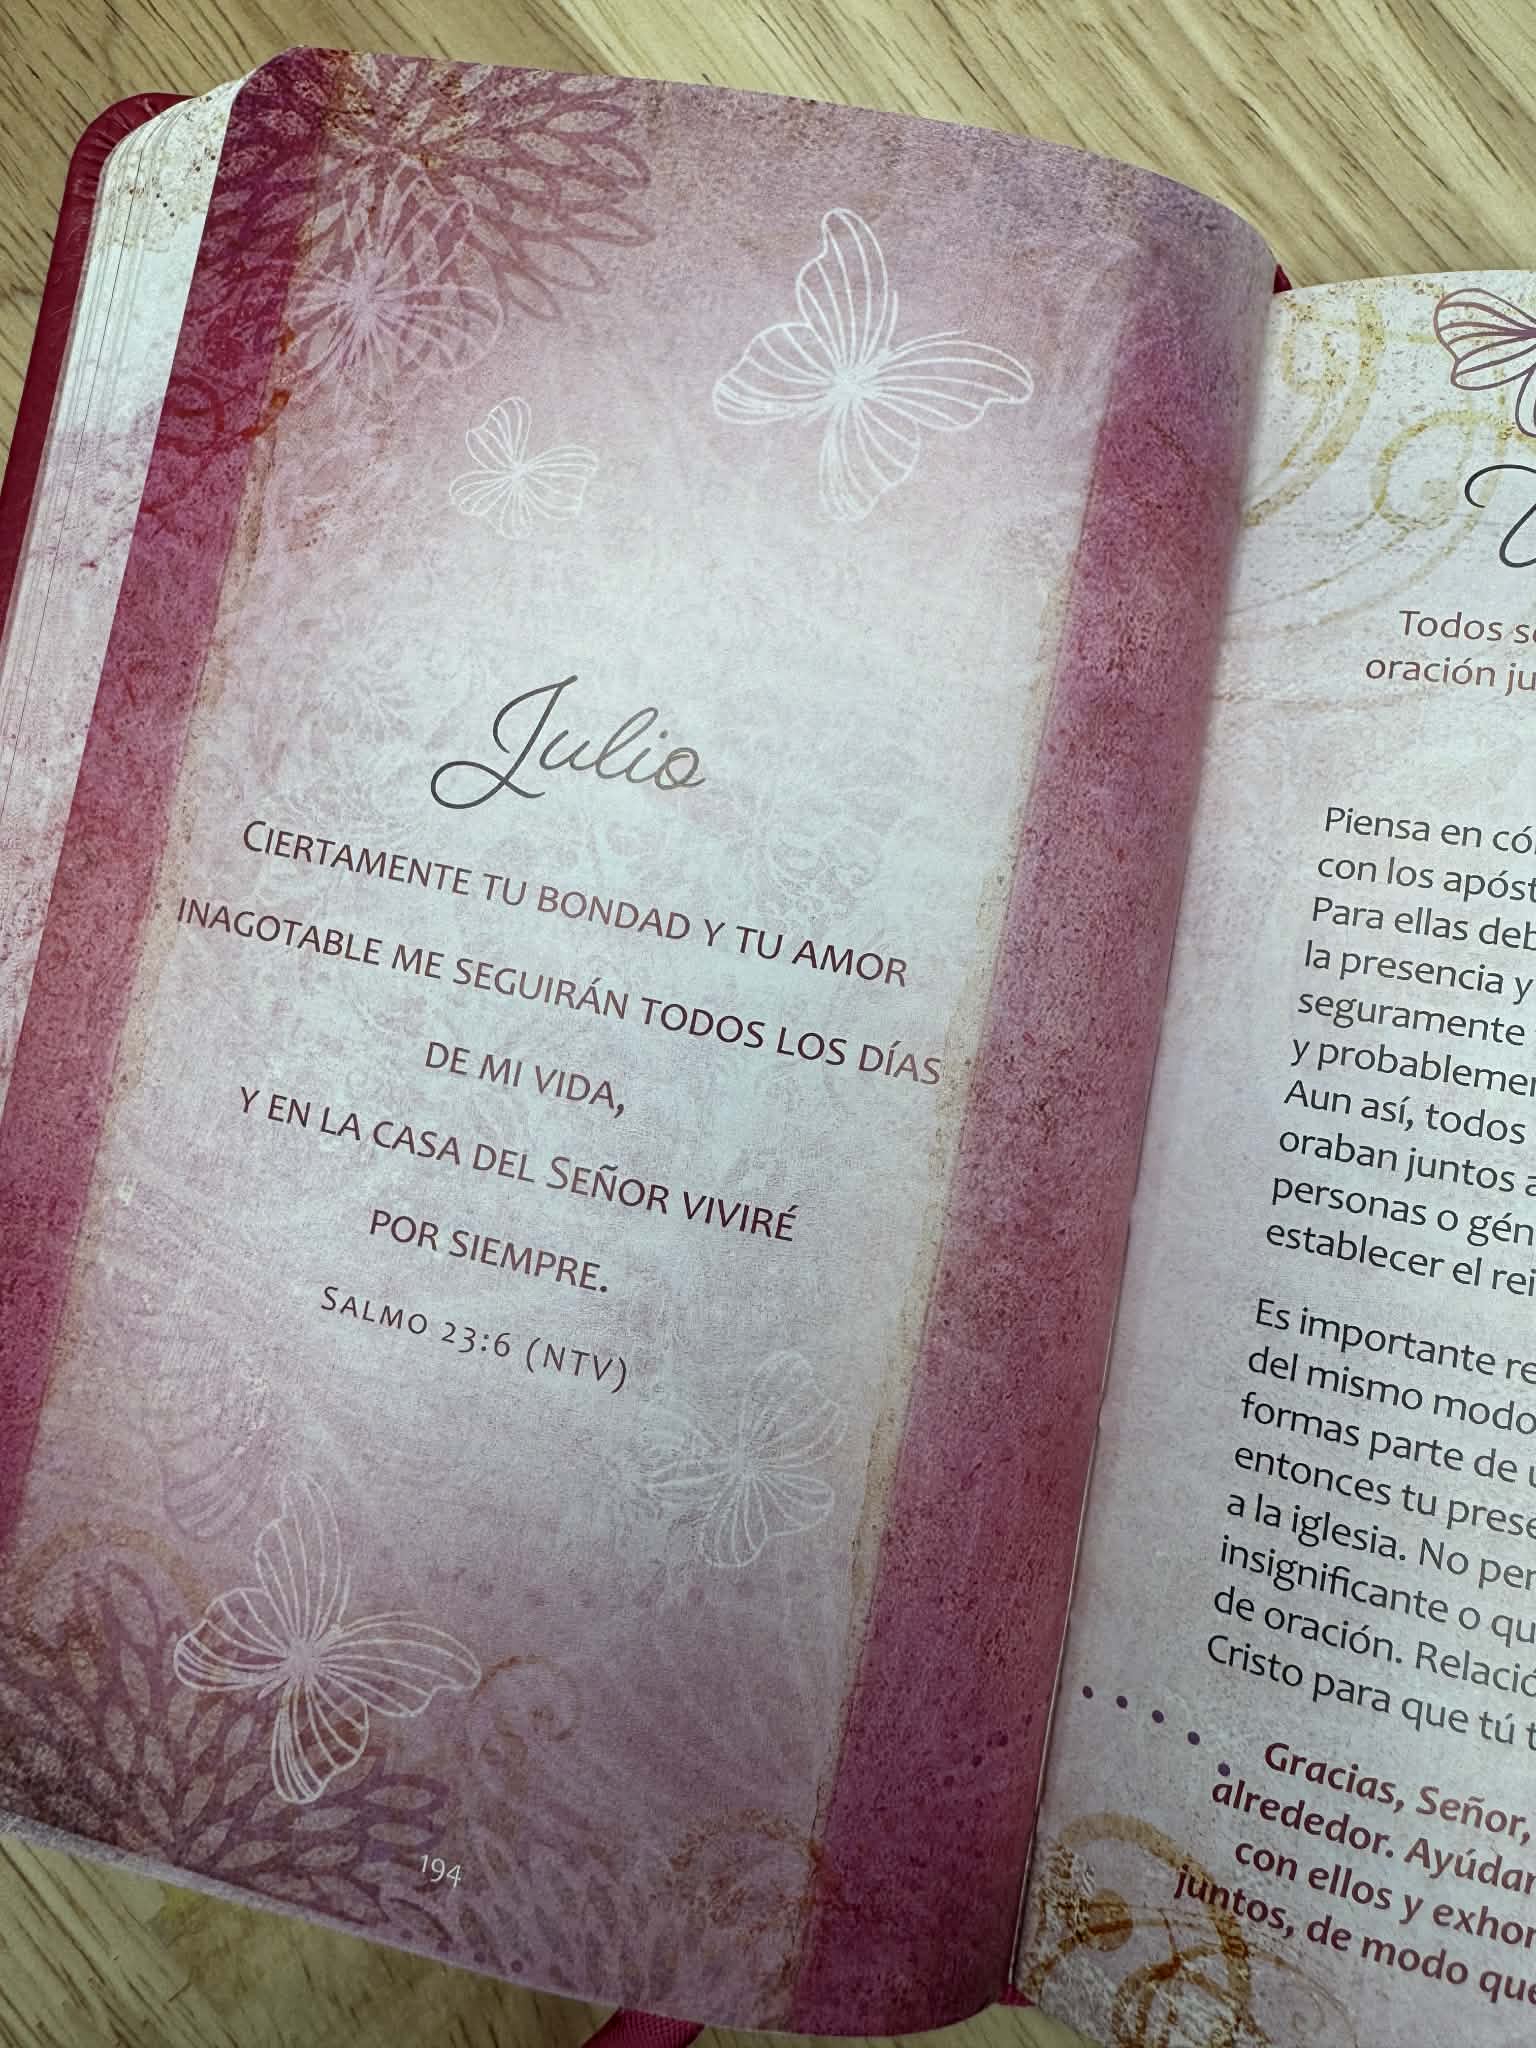 Julio
Ciertamente tu bondad y tu amor
inagotable me seguirán todos los días
de mi vida,
y en la casa del Señor viviré
por siempre.
Salmo 23:6 (NTV)
194
Todos
oración
Piensa en
con los
Para ellas
la presencia y
seguramente
y
Aun así, todos
oraban juntos
personas o
establecer el
Es importante
del mismo modo
formas parte de
entonces tu
a la iglesia. No
insignificante o
de oración.
Cristo para que tú
Gracias, Señor,
alrededor.
con ellos y
juntos, de modo que